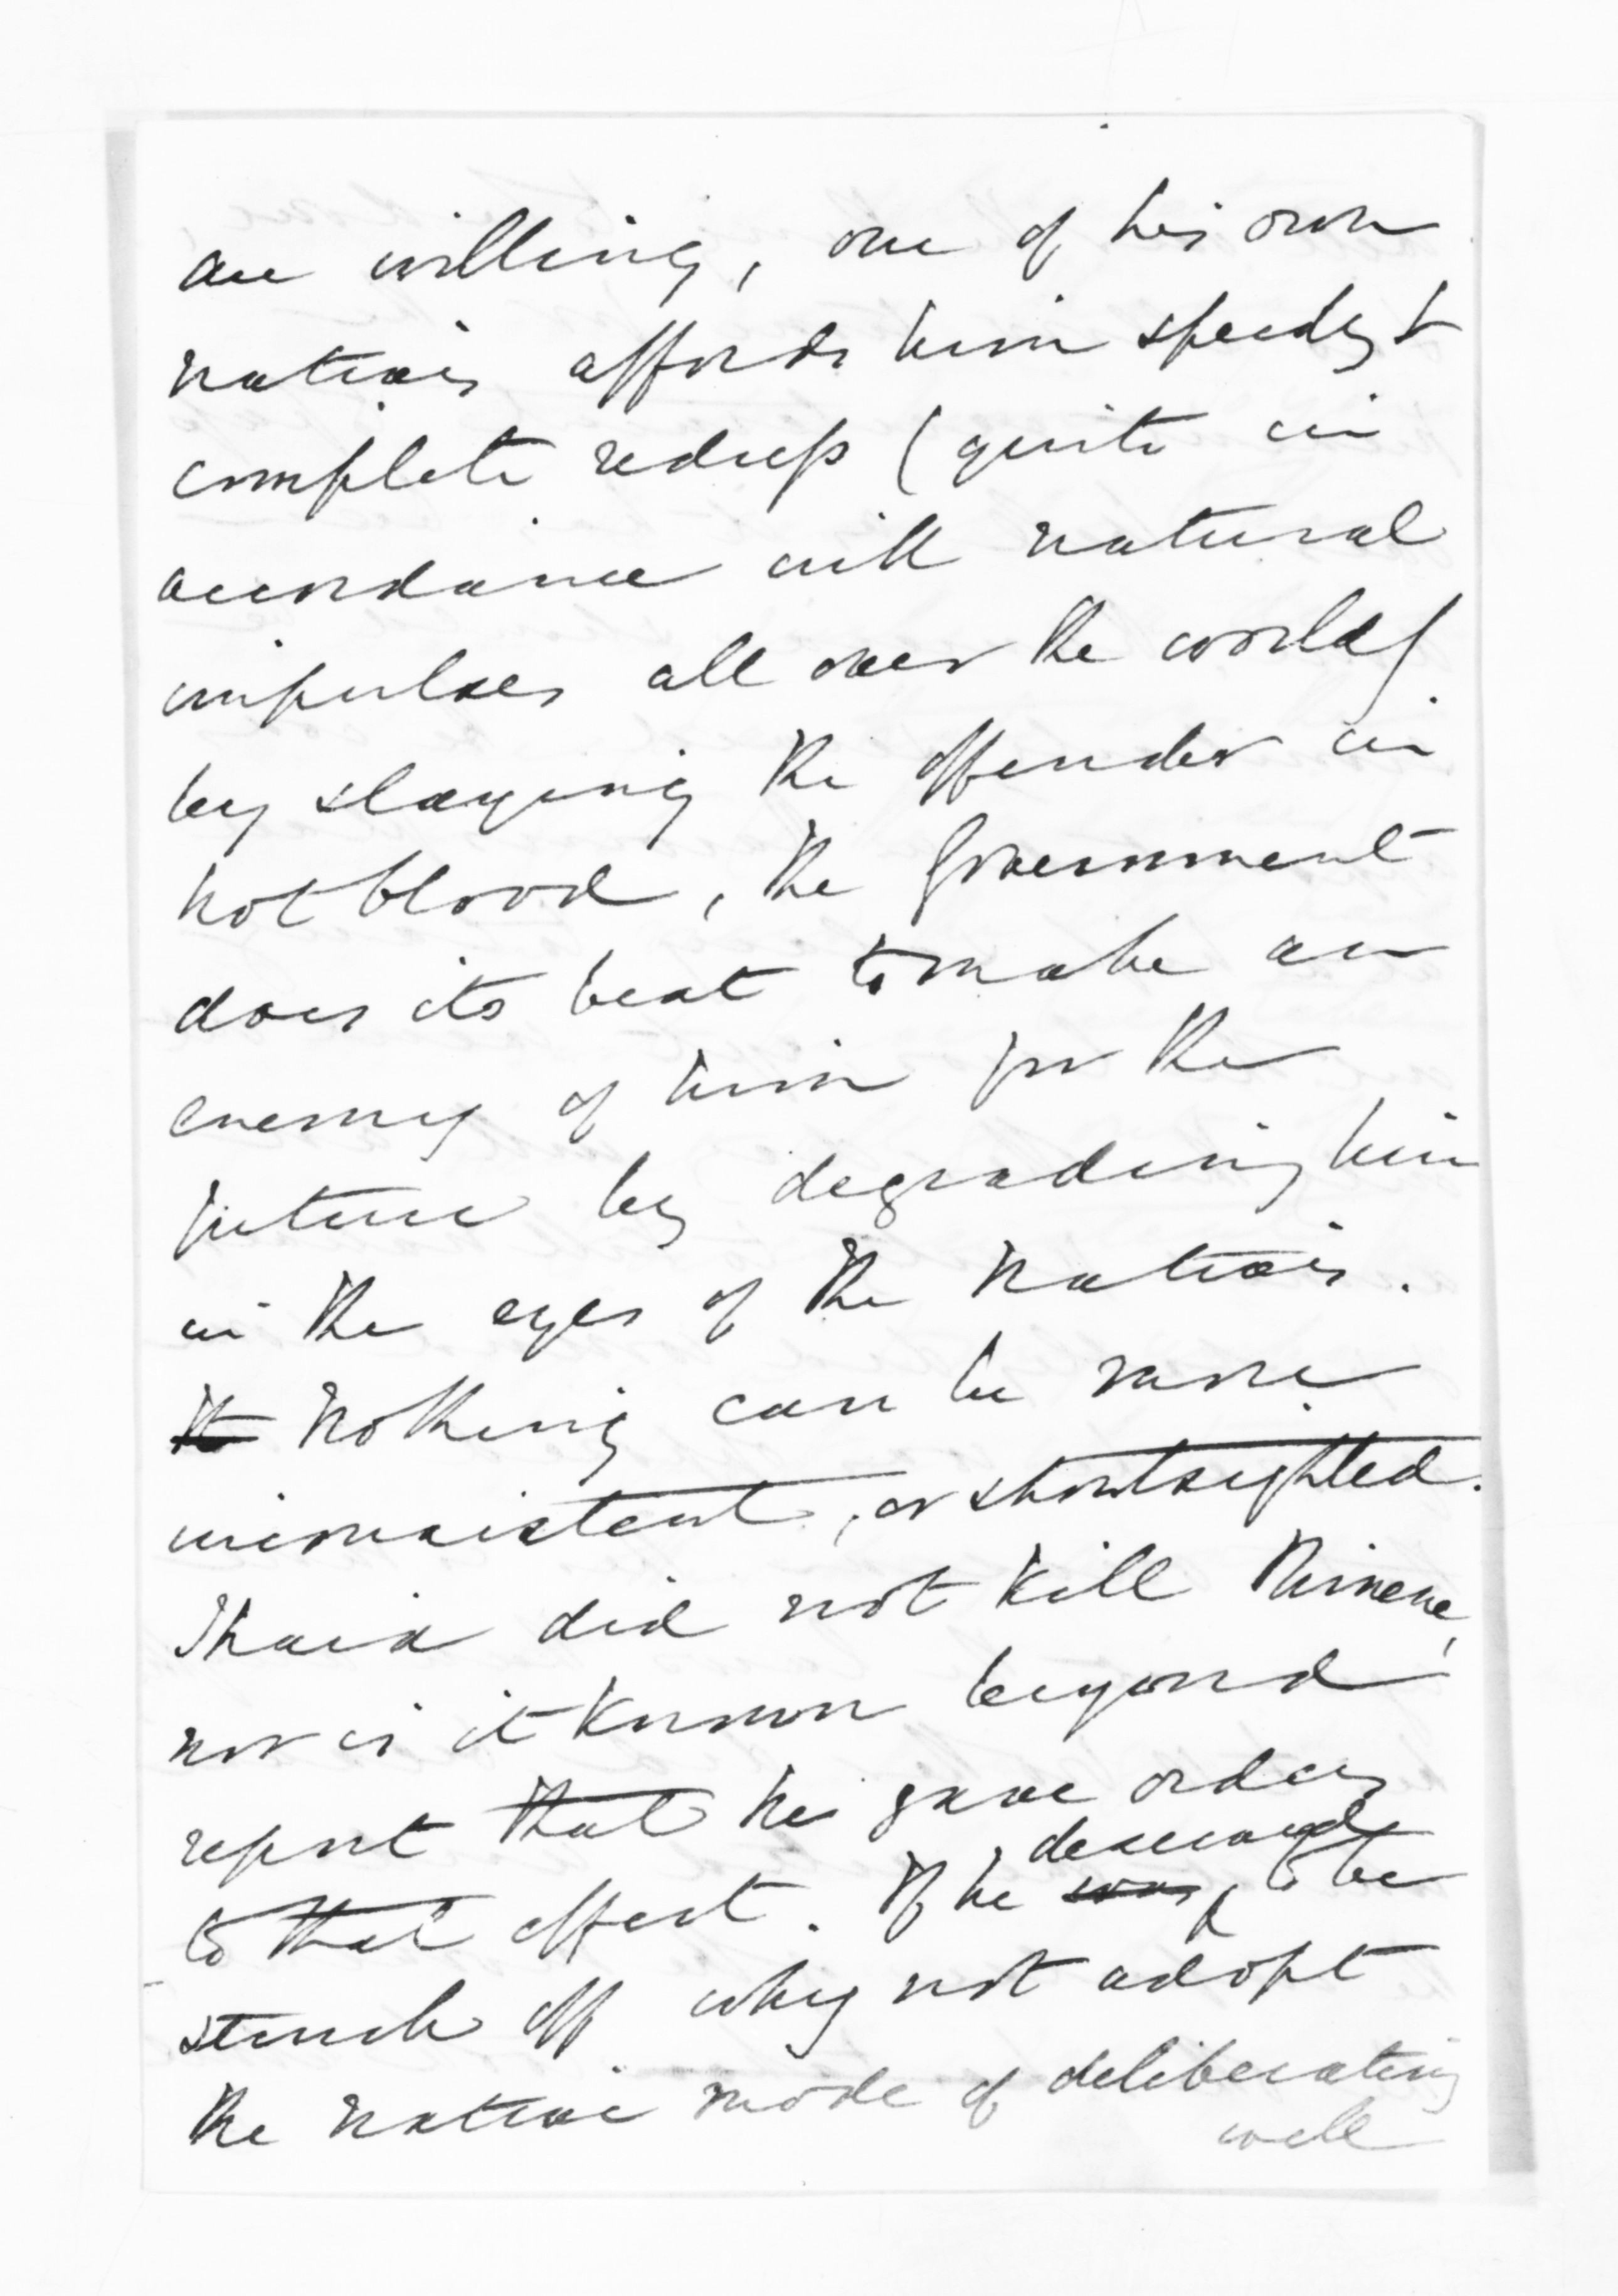 are willing, one of his own
natives affords him speedy &
complete redress (quite in
accordance with natural
impulses all over the world)
by slaying the offender in
hot blood, the Government
does its best to make an
enemy of him for the
future by degrading him
in the eyes of the natives.
Nothing can be more
inconsistent, or shortsighted.
Ihaia did not kill Rimene,
nor is it known beyond
report that he gave orders
to that effect. If he was deserved to be
struck off why not adopt
the native mode of deliberating
well